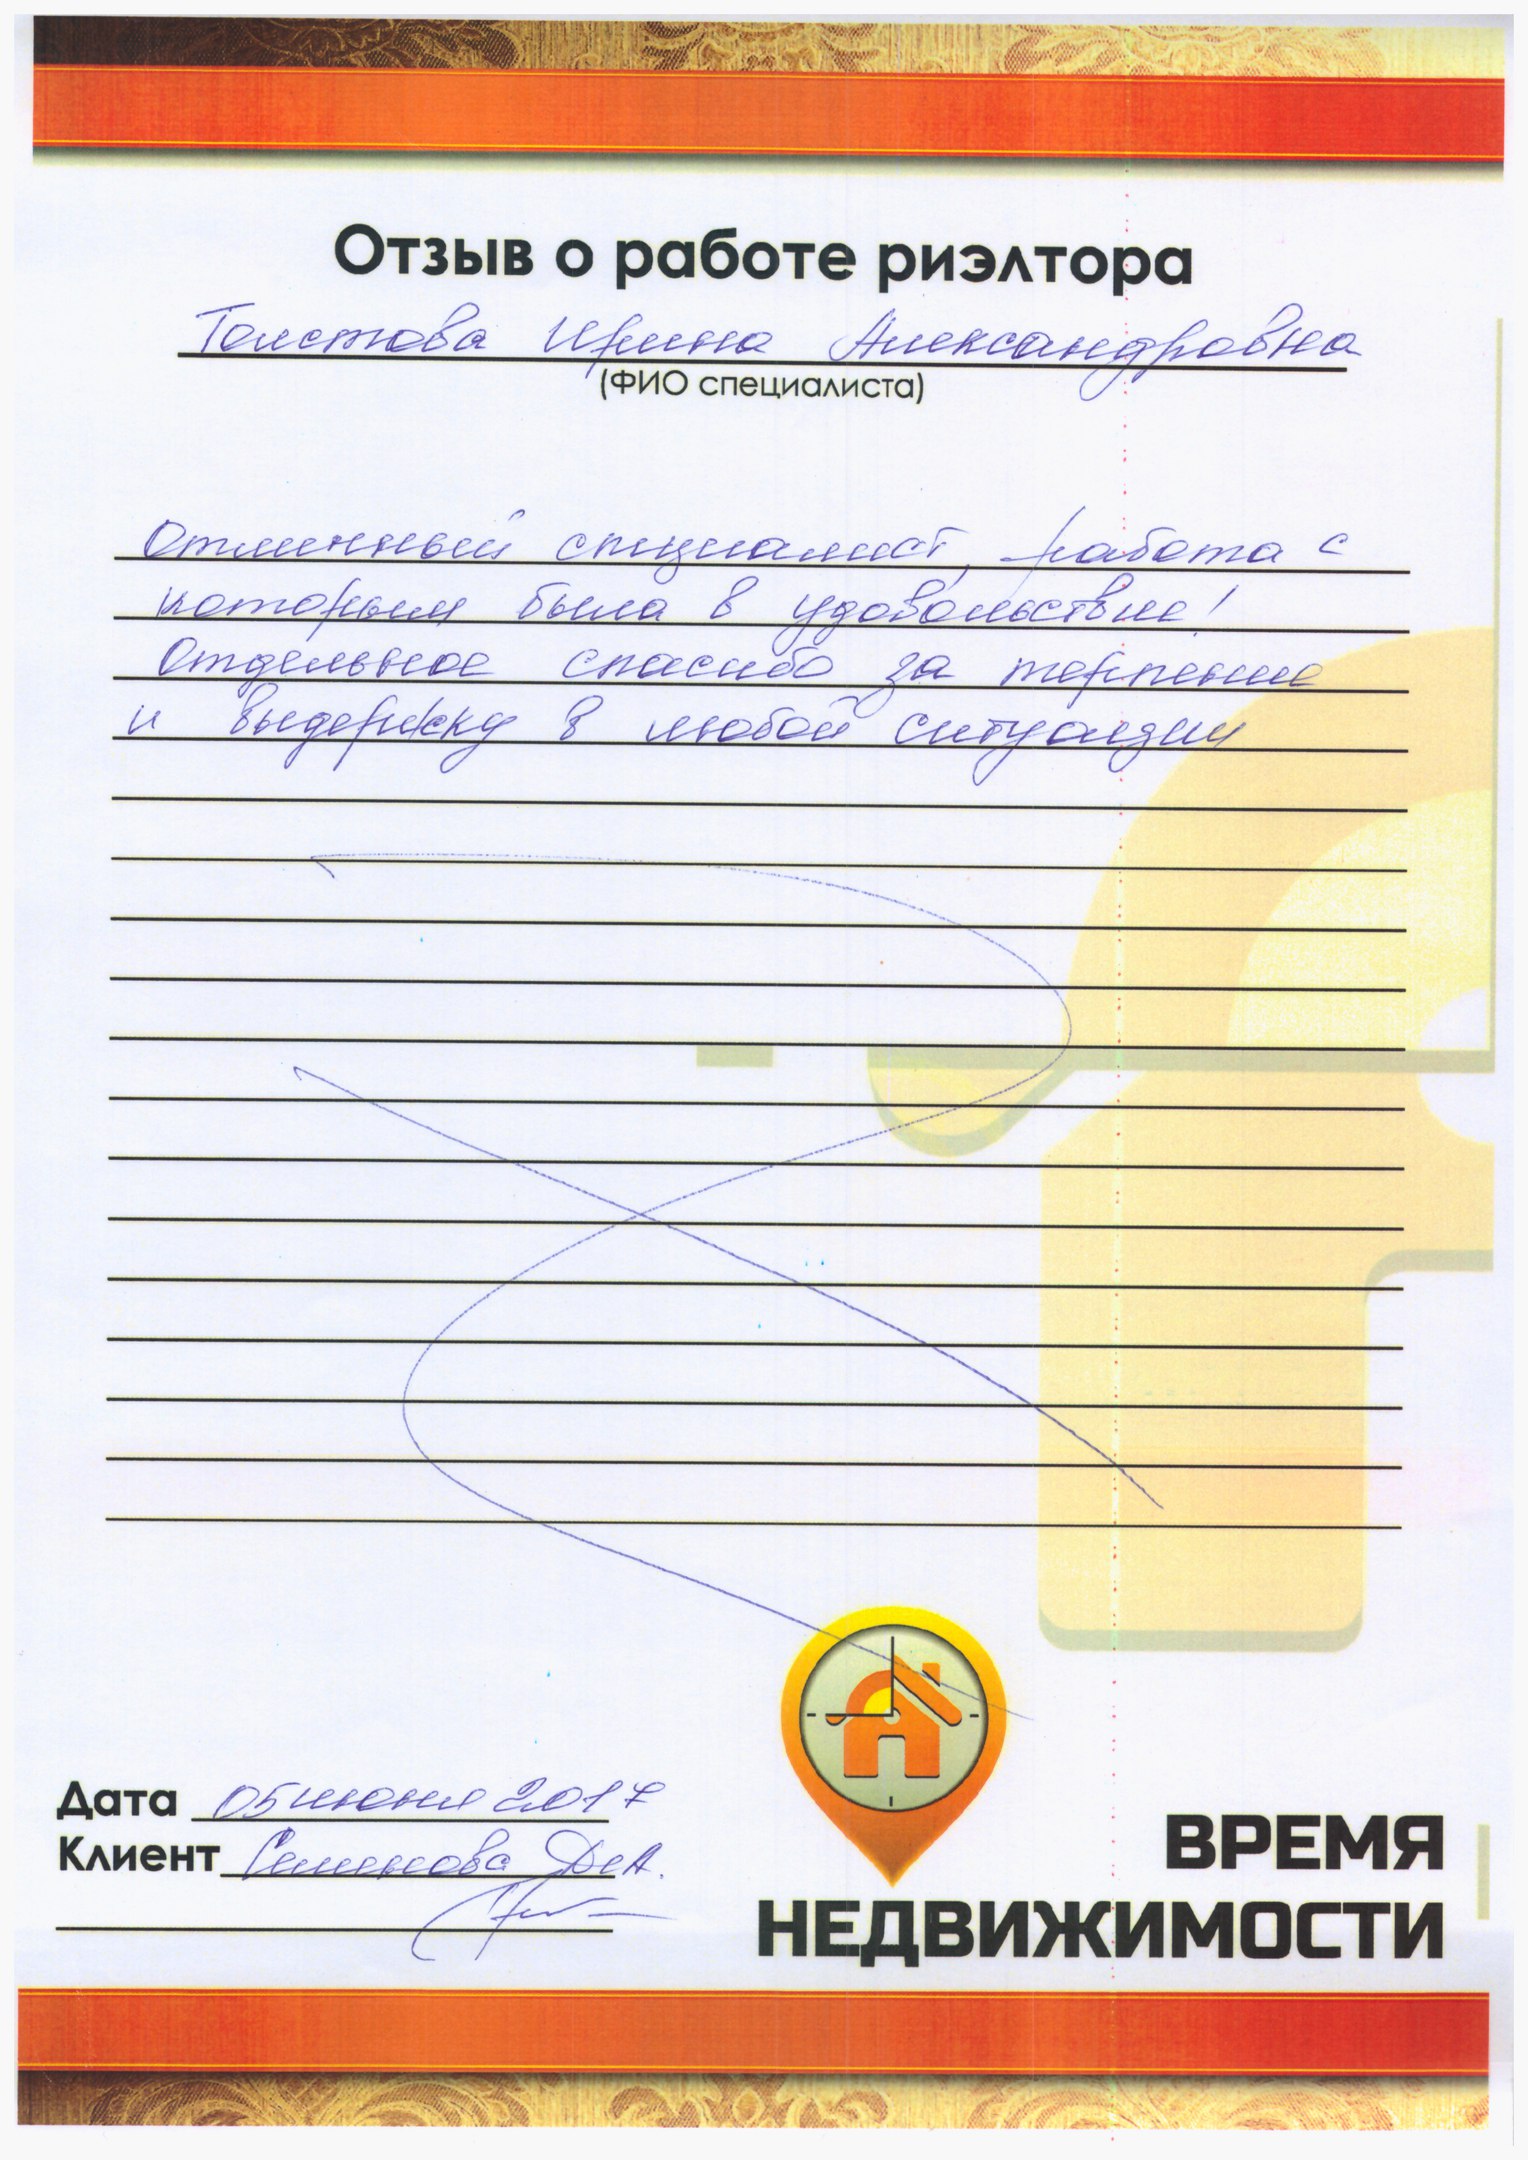 Отзыв о работе риэлтора
Толстова Ирина Александровна
(ФИО специалиста)
Отличный специалист, работа с
которым была в удовольствие!
Отдельное спасибо за терпение
и выдержку в любой ситуации
Дата 05 июня 2017
Клиент Семенова Д.А.
ВРЕМЯ
НЕДВИЖИМОСТИ